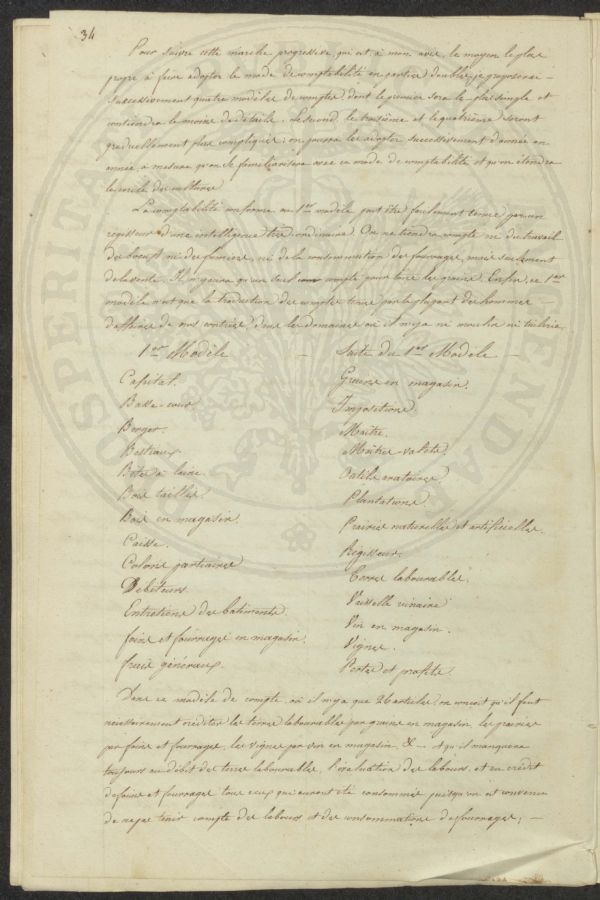 34
Pour suivre cette marche progressive, qui est, à mon avis, le moyen le plus
propre à faire adopter le mode de comptabilité en parties doubles, je proposerai
successivement quatre modèles de comptes, dont le premier sera le plus simple et
contiendra le moins de détails. Le second, le troisième et le quatrième seront
graduellement plus compliqués; on pourra les adopter successivement d'année en
année, à mesure qu'on se familiarisera avec ce mode de comptabilité et qu'on étendra
le cercle des cultures.
La comptabilité conforme au 1er modèle peut être facilement tenue par un
régisseur d'une intelligence très ordinaire. On ne tiendra compte ni du travail
des bœufs ni des fumiers, ni de la consommation des fourrages, mais seulement
de la vente. Il n'y aura qu'un seul compte pour tous les grains. Enfin, ce 1er
modèle n'est que la traduction des comptes tenus par la plupart des hommes
d'affaires de nos contrées, dans les domaines où il n'y a ni
1er Modèle — Suite du 1er Modèle —
Capital. Grains en magasin.
Basse-cour. Impositions.
Berger. Maître.
Bestiaux. Maîtres-valets.
Bêtes à laine. Outils aratoires.
Bois taillis. Plantations.
Bois en magasin. Prairies naturelles et artificielles.
Caisse. Régisseur.
Colons partiaires. Terres labourables.
Débiteurs. Vaisselle vinaire.
Entretiens des bâtiments. Vin en magasin.
foins et fourrages en magasin. Vignes.
frais généraux. Pertes et profits.
Dans ce modèle de compte, où il n'y a que 26 articles, on conçoit qu'il faut
nécessairement créditer les terres labourables par grains en magasin, les prairies
par foins et fourrages, les vignes par vin en magasin, &. — et qu'il manquera
toujours au débit des terres labourables, l'évaluation des labours, et au crédit
de foins et fourrages tous ceux qui auront été consommés puisqu'on est convenu
de ne pas tenir compte des labours et des consommations de fourrages; —